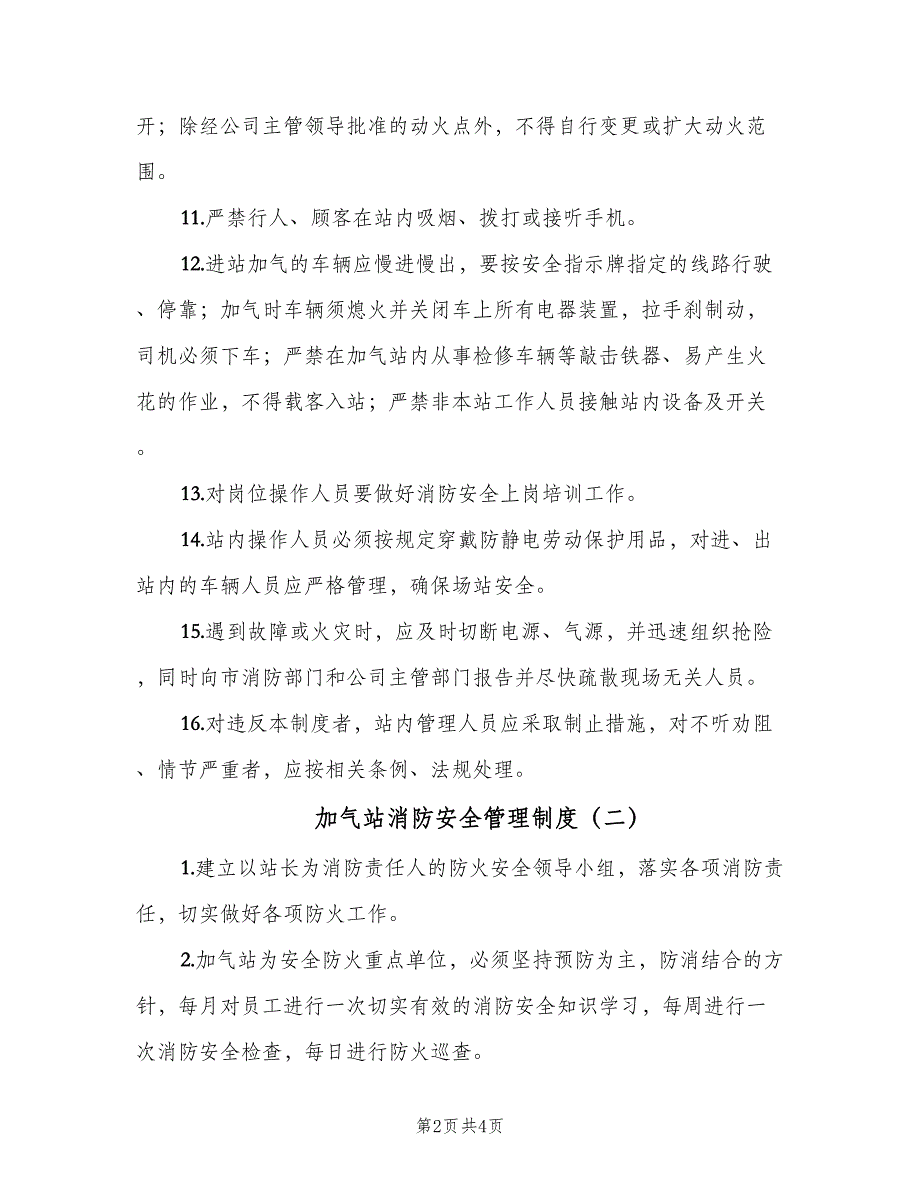 开；除经公司主管领导批准的动火点外，不得自行变更或扩大动火范
围。
11.严禁行人、顾客在站内吸烟、拨打或接听手机。
12.进站加气的车辆应慢进慢出，要按安全指示牌指定的线路行驶
、停靠；加气时车辆须熄火并关闭车上所有电器装置，拉手刹制动，
司机必须下车；严禁在加气站内从事检修车辆等敲击铁器、易产生火
花的作业，不得载客入站；严禁非本站工作人员接触站内设备及开关
。
13.对岗位操作人员要做好消防安全上岗培训工作。
14.站内操作人员必须按规定穿戴防静电劳动保护用品，对进、出
站内的车辆人员应严格管理，确保场站安全。
15.遇到故障或火灾时，应及时切断电源、气源，并迅速组织抢险
，同时向市消防部门和公司主管部门报告并尽快疏散现场无关人员。
16.对违反本制度者，站内管理人员应采取制止措施，对不听劝阻
、情节严重者，应按相关条例、法规处理。
加气站消防安全管理制度（二）
1.建立以站长为消防责任人的防火安全领导小组，落实各项消防责
任，切实做好各项防火工作。
2.加气站为安全防火重点单位，必须坚持预防为主，防消结合的方
针，每月对员工进行一次切实有效的消防安全知识学习，每周进行一
次消防安全检查，每日进行防火巡查。
第2页共4页